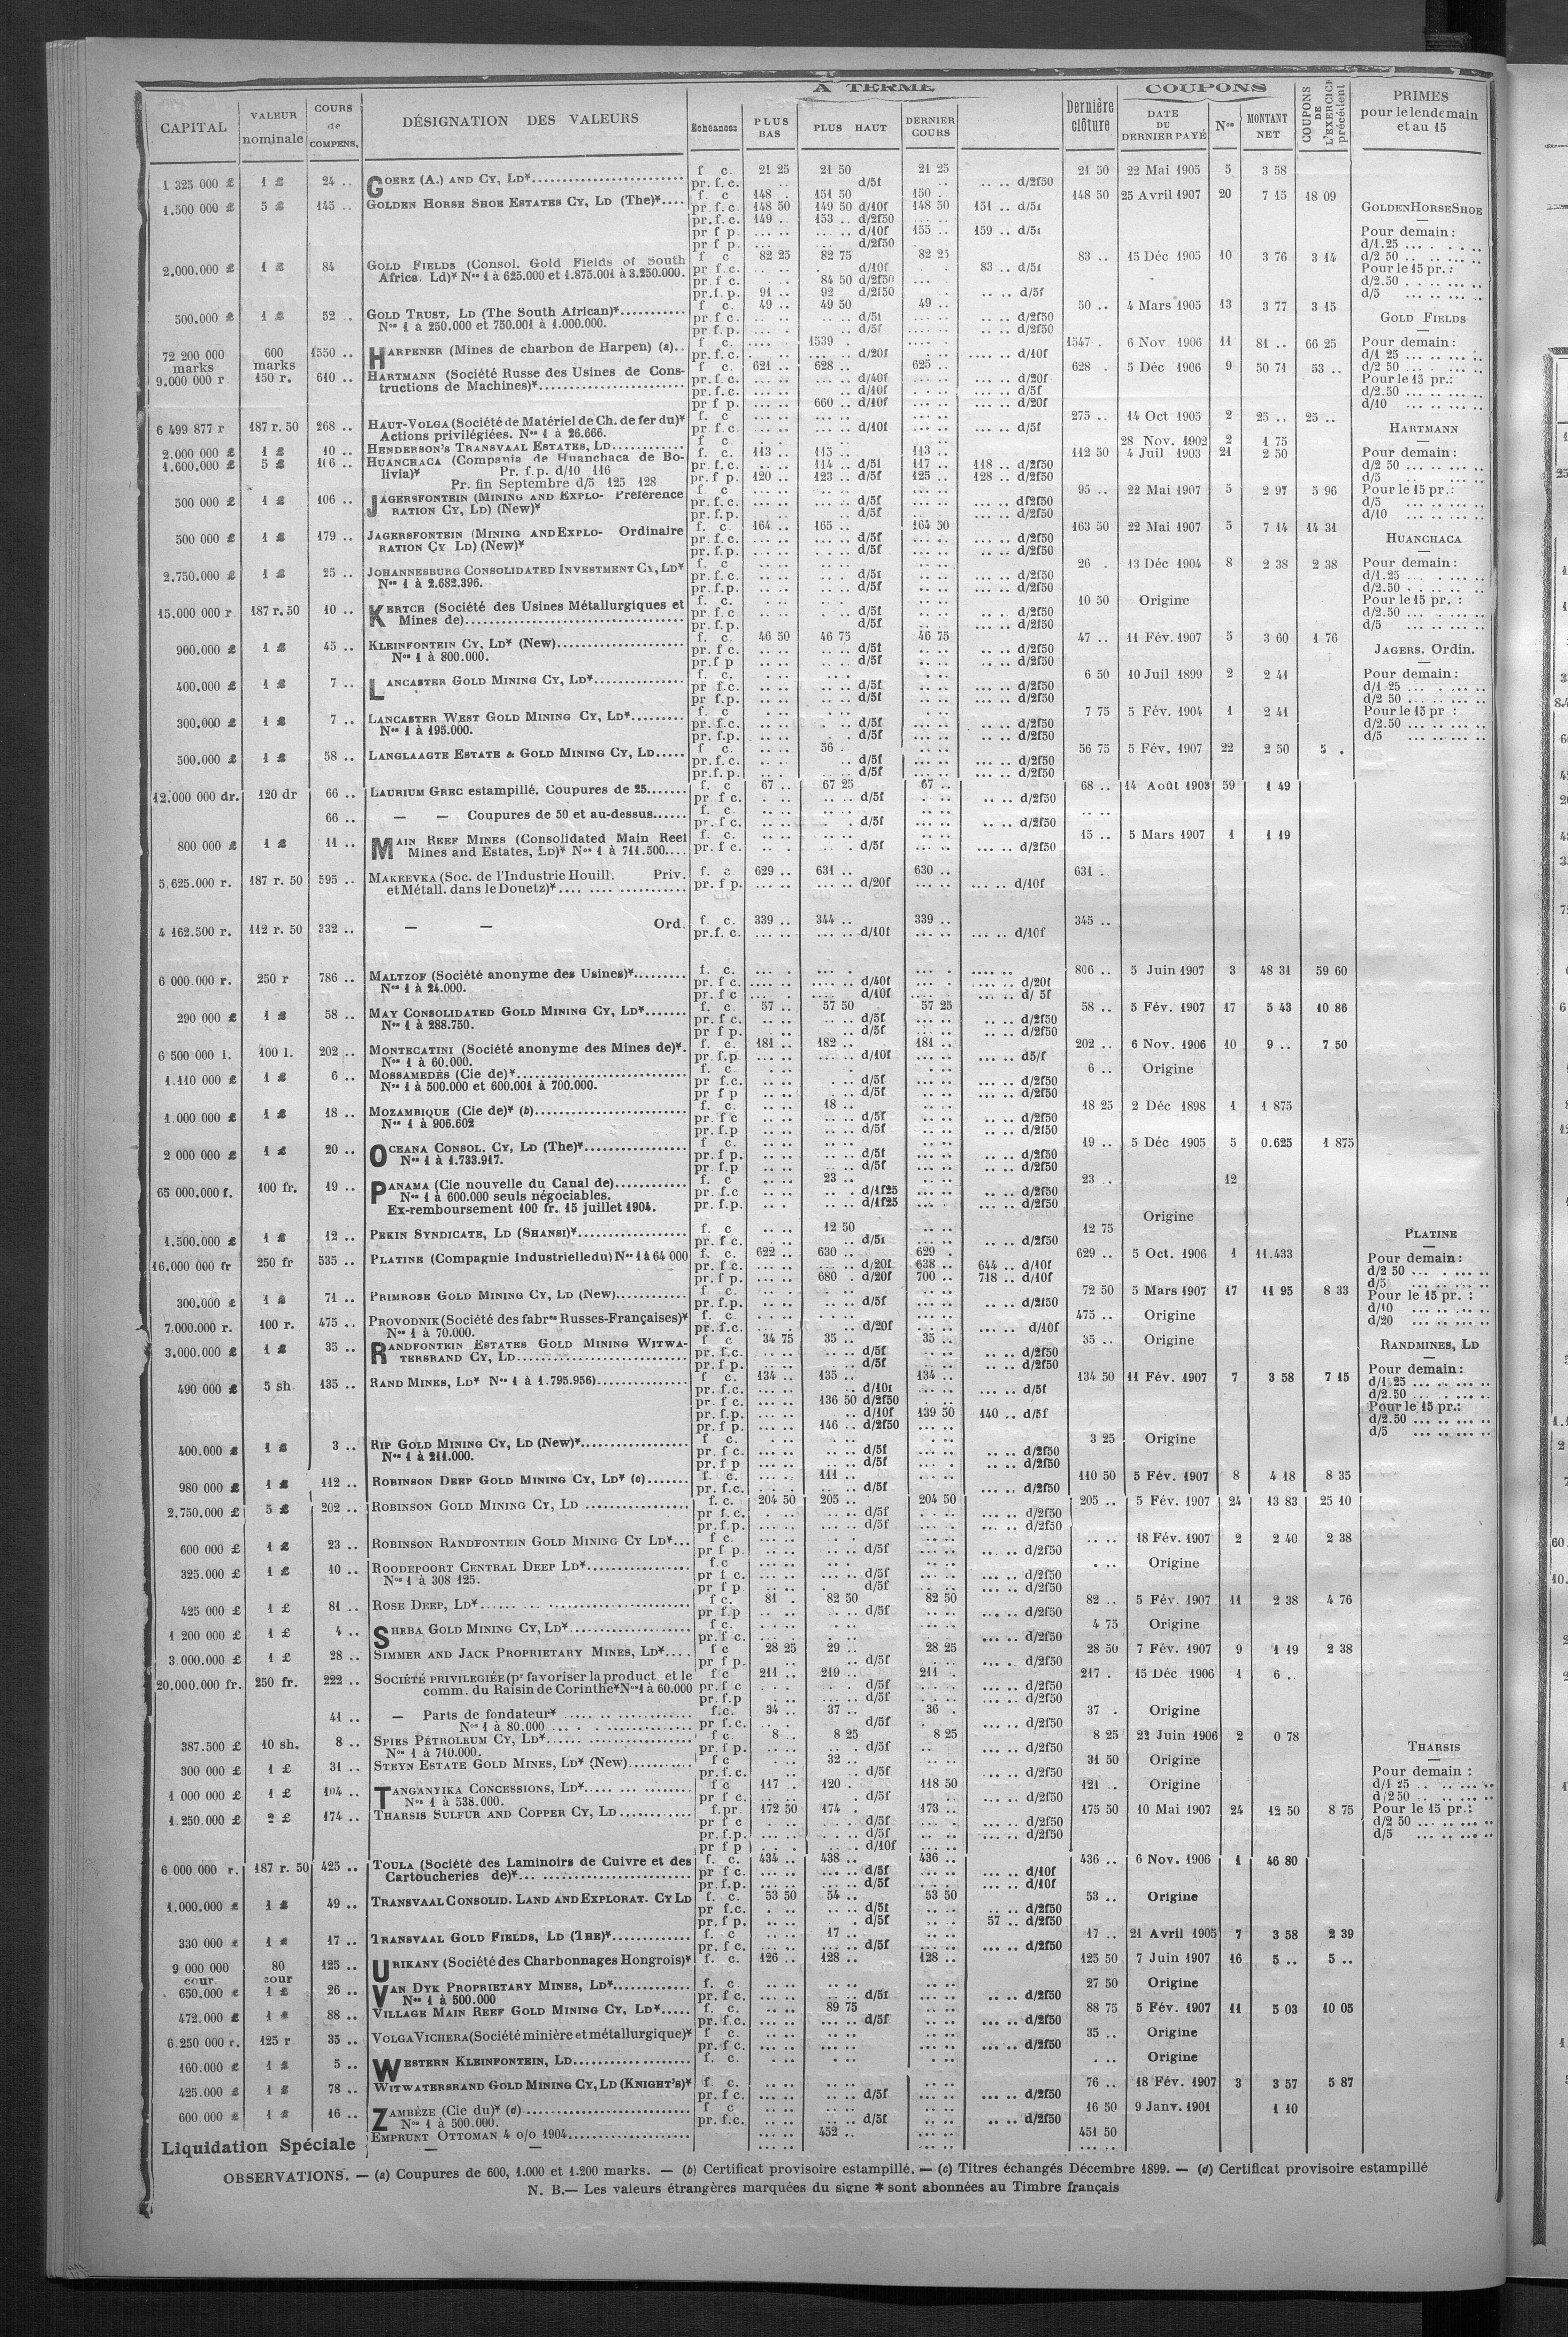 A TERME COUPONS
CAPITAL VALEUR nominale COURS de COMPENS. DÉSIGNATION DES VALEURS Echéances PLUS BAS PLUS HAUT DERNIER COURS Dernière clôture DATE DU DERNIER PAYÉ Nos MONTANT NET COUPONS DE L'EXERCICE précédent PRIMES pour le lendemain et au 15
1 325 000 £ 1 £ 24 .. GOERZ (A.) AND CY, LD* f c. 21 25 21 50 21 25 21 50 22 Mai 1905 5 3 58
pr. f. c. d/5f d/2f50
1.500 000 £ 5 £ 145 .. GOLDEN HORSE SHOE ESTATES CY, LD (The)* f. c 148 . 151 50 150 .. 148 50 25 Avril 1907 20 7 15 18 09
pr. f. c. 148 50 149 50 d/10f 148 50 151 .. d/5f
pr. f. c. 149 .. 153 .. d/2f50
pr f p. d/10f 155 .. 159 .. d/5f
pr f p. d/2f50
2.000.000 £ 1 £ 84 GOLD FIELDS (Consol. Gold Fields of South f c 82 25 82 75 82 25 83 .. 15 Déc 1905 10 3 76 3 14
Africa Ld)* Nos 1 à 625.000 et 1.875.001 à 3.250.000. pr f c. d/10f 83 .. d/5f
pr f c. 84 50 d/2f50
pr.f. p. 91 .. 92 d/2f50 d/5f
500.000 £ 1 £ 52 . GOLD TRUST, LD (The South African)* f c. 49 .. 49 50 49 .. 50 .. 4 Mars 1905 13 3 77 3 15
Nos 1 à 250.000 et 750.001 à 1.000.000. pr f c. d/5f d/2f50
pr. f p. d/5f d/2f50
72 200 000 marks 600 marks 1550 .. HARPENER (Mines de charbon de Harpen) (a).. f c. 1539 . 1547 . 6 Nov 1906 11 81 .. 66 25
pr. f. c. d/20f d/10f
9.000 000 r 150 r. 610 .. HARTMANN (Société Russe des Usines de Cons- f c. 621 .. 628 .. 625 .. 628 . 5 Déc 1906 9 50 71 53 ..
tructions de Machines)* pr. f. c. d/40f d/20f
pr. f. c. d/10f d/5f
pr f p. 660 .. d/10f d/20f
6 499 877 r 187 r. 50 268 .. HAUT-VOLGA (Société de Matériel de Ch. de fer du)* f. c 275 .. 14 Oct 1905 2 25 .. 25 ..
Actions privilégiées. Nos 1 à 26.666. pr f c. d/10f d/5f
2.000 000 £ 1 £ 10 .. HENDERSON'S TRANSVAAL ESTATES, LD f c. 28 Nov. 1902 2 1 75
1.600.000 £ 5 £ 116 .. HUANCHACA (Compania de Huanchaca de Bo- f c. 113 .. 115 .. 113 .. 112 50 4 Juil 1903 21 2 50
livia)* Pr. f.p. d/10 116 pr. f. c. 114 .. d/5f 117 .. 118 .. d/2f50
Pr. fin Septembre d/5 125 128 pr f p. 120 .. 123 .. d/5f 125 .. 128 .. d/2f50
500 000 £ 1 £ 106 .. JAGERSFONTEIN (MINING AND EXPLO- Préférence f c 95 .. 22 Mai 1907 5 2 97 5 96
RATION CY, LD) (New)* pr. f. c. d/5f d/2f50
pr. f. p. d/5f d/2f50
500 000 £ 1 £ 179 .. JAGERSFONTEIN (MINING AND EXPLO- Ordinaire f. c. 164 .. 165 .. 164 50 163 50 22 Mai 1907 5 7 14 14 31
RATION CY LD) (New)* pr. f. c. d/5f d/2f50
pr. f. p. d/5f d/2f50
2.750.000 £ 1 £ 25 .. JOHANNESBURG CONSOLIDATED INVESTMENT CY, LD* f. c 26 . 13 Déc 1904 8 2 38 2 38
Nos 1 à 2.682.396. pr. f. c. d/5f d/2f50
pr. f.p. d/5f d/2f50
15.000 000 r 187 r. 50 10 .. KERTCH (Société des Usines Métallurgiques et f. c. 10 50 Origine
Mines de) pr. f. c. d/5f d/2f50
pr. f.p. d/5f d/2f50
900.000 £ 1 £ 45 .. KLEINFONTEIN CY, LD* (New) f. c. 46 50 46 75 46 75 47 .. 11 Fév. 1907 5 3 60 1 76
Nos 1 à 800.000. pr. f c. d/5f d/2f50
pr.f p d/5f d/2f50
400.000 £ 1 £ 7 .. LANCASTER GOLD MINING CY, LD* f. c. 6 50 10 Juil 1899 2 2 41
pr f.c. d/5f d/2f50
pr f.p. d/5f d/2f50
300.000 £ 1 £ 7 .. LANCASTER WEST GOLD MINING CY, LD* f c 7 75 5 Fév. 1904 1 2 41
Nos 1 à 195.000. pr. f.c. d/5f d/2f50
pr. f.p. d/5f d/2f50
500.000 £ 1 £ 58 .. LANGLAAGTE ESTATE & GOLD MINING CY, LD f c. 56 . 56 75 5 Fév. 1907 22 2 50 5 .
pr. f. c. d/5f d/2f50
pr. f. p. d/5f d/2f50
12.000 000 dr. 120 dr 66 .. LAURIUM GREC estampillé. Coupures de 25 f. c 67 .. 67 25 67 .. 68 .. 14 Août 1903 59 1 49
pr f c. d/5f d/2f50
66 .. — — Coupures de 50 et au-dessus f. c.
pr. f c. d/5f d/2f50
800 000 £ 1 £ 11 .. MAIN REEF MINES (Consolidated Main Reef f. c. 15 .. 5 Mars 1907 1 1 19
Mines and Estates, LD)* Nos 1 à 711.500 pr. f c. d/5f d/2f50
5.625.000 r. 187 r. 50 595 .. MAKEEVKA (Soc. de l'Industrie Houill. Priv. f. c 629 .. 631 .. 630 .. 631 .
et Métall. dans le Donetz)* pr. f p. d/20f d/10f
4 162.500 r. 112 r. 50 332 .. — — Ord. f. c. 339 .. 344 .. 339 .. 345 ..
pr.f. c. d/10f d/10f
6 000 000 r. 250 r 786 .. MALTZOF (Société anonyme des Usines)* f. c. 806 .. 5 Juin 1907 3 48 31 59 60
Nos 1 à 24.000. pr. f c. d/40f d/20f
pr. f c d/10f d/ 5f
290 000 £ 1 £ 58 .. MAY CONSOLIDATED GOLD MINING CY, LD* f. c. 57 .. 57 50 57 25 58 .. 5 Fév. 1907 17 5 43 10 86
Nos 1 à 288.750. pr. f c. d/5f d/2f50
pr f p. d/5f d/2f50
6 500 000 l. 100 l. 202 .. MONTECATINI (Société anonyme des Mines de)*. f. c. 181 .. 182 .. 181 .. 202 .. 6 Nov. 1906 10 9 .. 7 50
Nos 1 à 60.000. pr. f.p d/10f d5/f
1.110 000 £ 1 £ 6 .. MOSSAMEDÈS (Cie de)* f. c 6 .. Origine
Nos 1 à 500.000 et 600.001 à 700.000. pr f.c. d/5f d/2f50
pr f p d/5f d/2f50
1.000 000 £ 1 £ 18 .. MOZAMBIQUE (Cie de)* (b) f. c. 18 .. 18 25 2 Déc 1898 1 1 875
Nos 1 à 906.602 pr. f c d/5f d/2f50
pr. f.p d/5f d/2f50
2 000 000 £ 1 £ 20 .. OCEANA CONSOL. CY, LD (The)* f c. 19 .. 5 Déc 1905 5 0.625 1 875
Nos 1 à 1.733.917. pr. f p. d/5f d/2f50
pr. f.p d/5f d/2f50
65 000.000 f. 100 fr. 19 .. PANAMA (Cie nouvelle du Canal de) f. c 23 .. 23 .. 12
Nos 1 à 600.000 seuls négociables. pr. f.c d/1f25 d/2f50
Ex-remboursement 100 fr. 15 juillet 1904. pr. f.p. d/1f25 d/2f50
1.500.000 £ 1 £ 12 .. PEKIN SYNDICATE, LD (SHANSI)* f. c 12 50 12 75 Origine
pr. f c. d/5f d/2f50
16.000 000 fr 250 fr 535 .. PLATINE (Compagnie Industrielle du) Nos 1 à 64 000 f. c. 622 .. 630 .. 629 . 629 .. 5 Oct. 1906 1 11.433
pr. f c. d/20f 638 .. 644 .. d/10f
pr. f p. 680 . d/20f 700 .. 718 .. d/10f
300.000 £ 1 £ 71 .. PRIMROSE GOLD MINING CY, LD (New) f. c 72 50 5 Mars 1907 17 11 95 8 33
pr. f.p. d/5f d/2f50
7.000.000 r. 100 r. 475 .. PROVODNIK (Société des fabres Russes-Françaises)* f. c. 475 .. Origine
Nos 1 à 70.000. pr. f.c. d/20f d/10f
3.000.000 £ 1 £ 35 .. RANDFONTEIN ESTATES GOLD MINING WITWA- f c 34 75 35 .. 35 .. 35 .. Origine
TERSRAND CY, LD pr. f.c. d/5f d/2f50
pr. f p. d/5f d/2f50
490 000 £ 5 sh. 135 .. RAND MINES, LD* Nos 1 à 1.795.956) f c. 134 .. 135 .. 134 .. 134 50 11 Fév. 1907 7 3 58 7 15
pr. f.c. d/10f d/5f
pr. f c. 136 50 d/2f50
pr. f.p. d/10f 139 50 140 .. d/5f
pr. f p. 146 .. d/2f50
400.000 £ 1 £ 3 .. RIP GOLD MINING CY, LD (New)* f c. 3 25 Origine
Nos 1 à 211.000. pr. f c. d/5f d/2f50
pr. f p d/5f d/2f50
980 000 £ 1 £ 112 .. ROBINSON DEEP GOLD MINING CY, LD* (c) f. c. 111 .. 110 50 5 Fév. 1907 8 4 18 8 35
pr. f.c. d/5f d/2f50
2.750.000 £ 5 £ 202 .. ROBINSON GOLD MINING CY, LD f. c. 204 50 205 .. 204 50 205 .. 5 Fév. 1907 24 13 83 25 10
pr f.c. d/5f d/2f50
pr. f.p. d/5f d/2f50
600 000 £ 1 £ 23 .. ROBINSON RANDFONTEIN GOLD MINING CY LD* f c. 18 Fév. 1907 2 2 40 2 38
pr f p. d/5f d/2f50
325.000 £ 1 £ 10 .. ROODEPOORT CENTRAL DEEP LD* f.c Origine
Nos 1 à 308 125. pr f. c. d/5f d/2f50
pr f p. d/5f d/2f50
425 000 £ 1 £ 81 .. ROSE DEEP, LD* f c. 81 . 82 50 82 50 82 .. 5 Fév. 1907 11 2 38 4 76
pr f.p d/5f d/2f50
1 200 000 £ 1 £ 4 .. SHEBA GOLD MINING CY, LD* f c. 4 75 Origine
pr. f c. d/2f50
3.000.000 £ 1 £ 28 .. SIMMER AND JACK PROPRIETARY MINES, LD* f c 28 25 29 .. 28 25 28 50 7 Fév. 1907 9 1 19 2 38
pr f p. d/5f d/2f50
20.000.000 fr. 250 fr. 222 .. SOCIÉTÉ PRIVILEGIÉE (pr favoriser la product et le f c 211 .. 219 .. 211 . 217 . 15 Déc 1906 1 6 ..
comm. du Raisin de Corinthe* Nos 1 à 60.000 pr. f c d/5f d/2f50
pr. f.p d/5f d/2f50
41 .. — Parts de fondateur* f.c. 34 .. 37 .. 36 . 37 . Origine
Nos 1 à 80.000 pr f.c. d/5f d/2f50
387.500 £ 10 sh. 8 .. SPIES PETROLEUM CY, LD* f c. 8 .. 8 25 8 25 8 25 22 Juin 1906 2 0 78
Nos 1 à 710.000. pr. f p. d/5f d/2f50
300 000 £ 1 £ 31 .. STEYN ESTATE GOLD MINES, LD* (New) f c 32 .. 31 50 Origine
pr. f.c. d/5f d/2f50
1 000 000 £ 1 £ 104 .. TANGANYIKA CONCESSIONS, LD* f c 117 . 120 . 118 50 121 .. Origine
Nos 1 à 538.000. pr f c. d/5f d/2f50
1.250.000 £ 2 £ 174 .. THARSIS SULFUR AND COPPER CY, LD f.pr. 172 50 174 . 173 .. 175 50 10 Mai 1907 24 12 50 8 75
pr f c d/5f d/2f50
pr. f.p. d/5f d/2f50
pr f p d/10f
6 000 000 r. 187 r. 50 425 .. TOULA (Société des Laminoirs de Cuivre et des f. c. 434 .. 438 .. 436 .. 436 .. 6 Nov. 1906 1 46 80
Cartoucheries de)* pr f c. d/5f d/10f
pr. f.p. d/5f d/10f
1.000.000 £ 1 £ 49 .. TRANSVAAL CONSOLID. LAND AND EXPLORAT. CY LD f. c. 53 50 54 .. 53 50 53 .. Origine
pr f.c. d/5f d/2f50
pr. f p. d/5f 57 .. d/2f50
330 000 £ 1 £ 17 .. TRANSVAAL GOLD FIELDS, LD (THE)* f. c 17 .. 17 .. 21 Avril 1905 7 3 58 2 39
pr. f c. d/5f d/2f50
9 000 000 cour. 80 cour 125 .. URIKANY (Société des Charbonnages Hongrois)* f. c. 126 .. 128 .. 128 .. 125 50 7 Juin 1907 16 5 .. 5 ..
650.000 £ 1 £ 26 .. VAN DYK PROPRIETARY MINES, LD* f. c 27 50 Origine
Nos 1 à 500.000 pr. f c. d/5f d/2f50
472.000 £ 1 £ 88 .. VILLAGE MAIN REEF GOLD MINING CY, LD* f. c. 89 75 88 75 5 Fév. 1907 11 5 03 10 05
pr. f.c. d/5f d/2f50
6.250 000 r. 125 r 35 .. VOLGA VICHERA (Société minière et métallurgique)* f c. 35 .. Origine
pr. f c. d/2f50
160.000 £ 1 £ 5 .. WESTERN KLEINFONTEIN, LD f. c. Origine
425.000 £ 1 £ 78 .. WITWATERSRAND GOLD MINING CY, LD (KNIGHT'S)* f c. 76 .. 18 Fév. 1907 3 3 57 5 87
pr. f c. d/5f d/2f50
600.000 £ 1 £ 16 .. ZAMBÈZE (Cie du)* (d) f c 16 50 9 Janv. 1901 1 10
Nos 1 à 500.000. pr. f.c. d/5f d/2f50
Liquidation Spéciale EMPRUNT OTTOMAN 4 o/o 1904 452 .. 451 50
— —
GOLDEN HORSE SHOE
Pour demain :
d/1.25
d/2 50
Pour le 15 pr. :
d/2.50
d/5
GOLD FIELDS
Pour demain :
d/1 25
d/2 50
Pour le 15 pr.:
d/2.50
d/10
HARTMANN
Pour demain :
d/2 50
d/5
Pour le 15 pr.:
d/5
d/10
HUANCHACA
Pour demain :
d/1.25
d/2.50
Pour le 15 pr. :
d/2.50
d/5
JAGERS. Ordin.
Pour demain :
d/1 25
d/2 50
Pour le 15 pr :
d/2.50
d/5
PLATINE
Pour demain :
d/2 50
d/5
Pour le 15 pr. :
d/10
d/20
RANDMINES, LD
Pour demain :
d/1.25
d/2.50
Pour le 15 pr.:
d/2.50
d/5
THARSIS
Pour demain :
d/1 25
d/2 50
Pour le 15 pr.:
d/2 50
d/5
OBSERVATIONS. — (a) Coupures de 600, 1.000 et 1.200 marks. — (b) Certificat provisoire estampillé. — (c) Titres échangés Décembre 1899. — (d) Certificat provisoire estampillé
N. B.— Les valeurs étrangères marquées du signe * sont abonnées au Timbre français